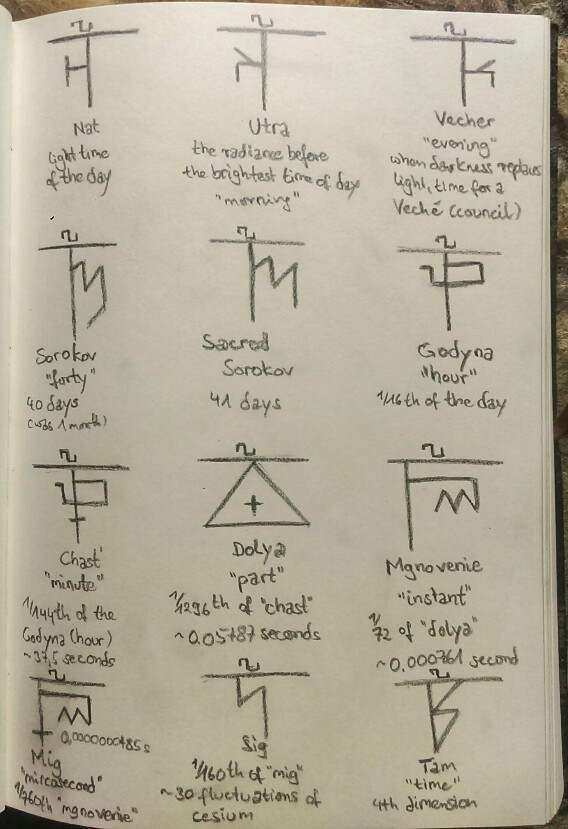 Nat
light time
of the day
Utra
the radiance before
the brightest time of day
"morning"
Vecher
"evening"
when darkness replaces
light, time for a
Veché (council)
Sorokov
"forty"
40 days
(was 1 month)
Sacred
Sorokov
41 days
Godyna
"hour"
1/16th of the day
Chast'
"minute"
1/144th of the
Godyna (hour)
~37,5 seconds
Dolya
"part"
1/1296th of "chast"
~0.05787 seconds
Mgnovenie
"instant"
1/72 of "dolya"
~0,000761 second
0,0000000485s
Mig
"mircosecond"
1/760th "mgnoverie"
Sig
1/160th of "mig"
~30 fluctuations of
cesium
Tam
"time"
4th dimension